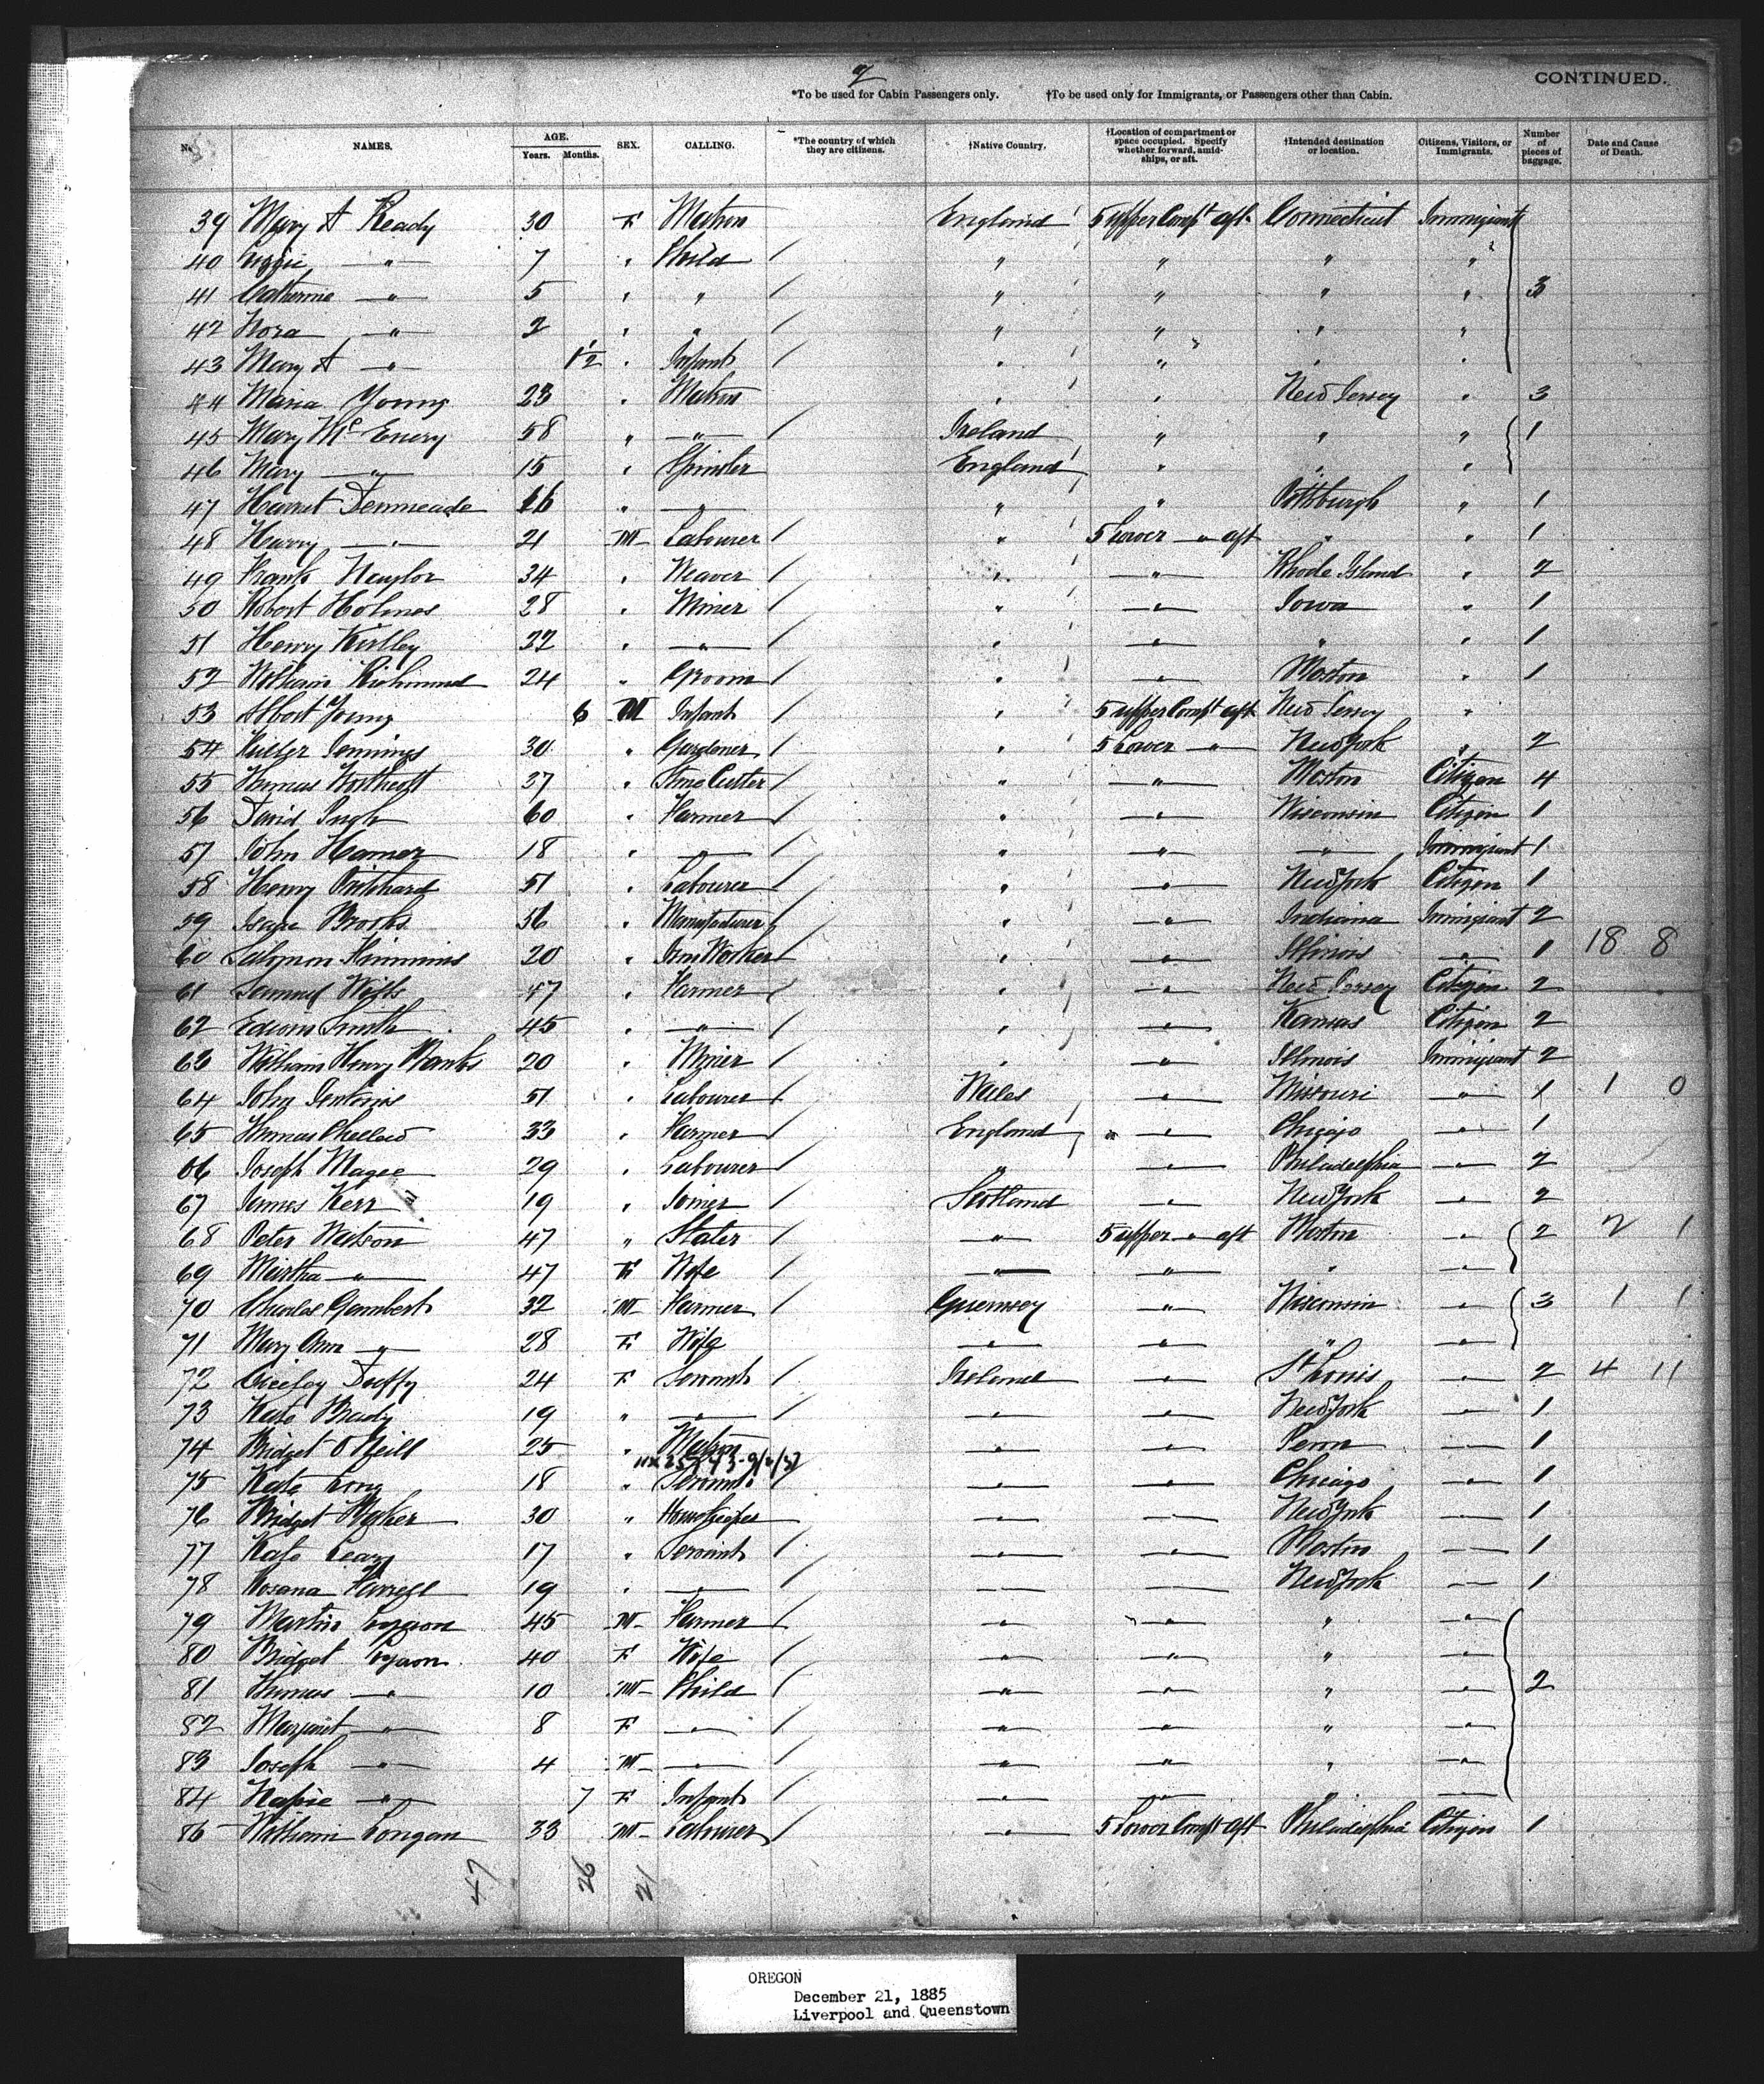 2
CONTINUED.
*To be used for Cabin Passengers only. †To be used only for Immigrants, or Passengers other than Cabin.
No. NAMES. AGE. Years. Months. SEX. CALLING. *The country of which they are citizens. †Native Country. †Location of compartment or space occupied. Specify whether forward, amidships, or aft. †Intended destination or location. Citizens, Visitors, or Immigrants. Number of pieces of baggage. Date and Cause of Death.
39 Mary A Ready 30 F Matron England 5 upper Compt aft Connecticut Immigrant
40 Lizzie " 7 " Child / " " " "
41 Catherine " 5 " " / " " " " 3
42 Nora " 2 " " / " " " "
43 Mary A " 1½ " Infant / " " " "
44 Maria Young 23 " Matron " " New Jersey " 3
45 Mary Mc Enery 58 " " / Ireland " " " 1
46 Mary " 15 " Spinster England " " "
47 Harriet Denmeade 16 " " " " Pittsburgh " 1
48 Harry " 21 M Labourer / " 5 Lower " aft " " 1
49 Frank Naylor 34 " Weaver / " " Rhode Island " 2
50 Robert Holmes 28 " Miner / " " Iowa " 1
51 Henry 32 " " / " " " " 1
52 William Richmond 24 " Groom / " " Boston " 1
53 Albert Young 6 M Infant / " 5 upper Compt aft New Jersey "
54 Jennings 30 " Gardener / " 5 Lower " New York " 2
55 Thomas Northcott 37 " Stone Cutter / " " Boston Citizen 4
56 David 60 " Farmer / " " Wisconsin Citizen 1
57 John Hamer 18 " " / " " " Immigrant 1
58 Henry Pritchard 51 " Labourer / " " New York Citizen 1
59 Brooks 56 " Manufacturer / " " Indiana Immigrant 2
60 Solomon 20 " Iron Worker " " Illinois " 1 18 8
61 Samuel 47 " Farmer / " " New Jersey Citizen 2
62 Edwin Smith 45 " " / " " Kansas Citizen 2
63 William Henry Banks 20 " Miner / " " Illinois Immigrant 2
64 John Jenkins 51 " Labourer / Wales " Missouri " 1 1 0
65 Thomas Chellew 33 " Farmer / England " Chicago " 1
66 Joseph Magee 29 " Labourer / " " Philadelphia " 2
67 James Kerr 19 " Joiner / Scotland " New York " 2
68 Peter Watson 47 " Slater / " 5 upper " aft Boston " 2 2 1
69 Martha " 47 F Wife / " " " "
70 Charles Gambert 32 M Farmer / Guernsey " Wisconsin " 3 1 1
71 Mary Ann " 28 F Wife " " " "
72 Duffy 24 F Servant / Ireland " St Louis " 2 4 11
73 Kate Brady 19 " " / " " New York " 1
74 Bridget O Neill 25 " Matron " " Penn " 1
75 Kate Long 18 " Servant / " " Chicago " 1
76 Bridget Maher 30 " Housekeeper " " New York " 1
77 Kate Leary 17 " Servant / " " Boston " 1
78 Rosana Farrell 19 " " / " " New York " 1
79 Martin 45 M Farmer / " " " "
80 Bridget 40 F Wife / " " " "
81 Thomas " 10 M Child / " " " " 2
82 Margaret " 8 F " / " " " "
83 Joseph " 4 M " / " " " "
84 " 7 F Infant / " " " "
85 William Longan 33 M Labourer / " 5 Lower Compt aft Philadelphia Citizen 1
47 26 21
OREGON
December 21, 1885
Liverpool and Queenstown